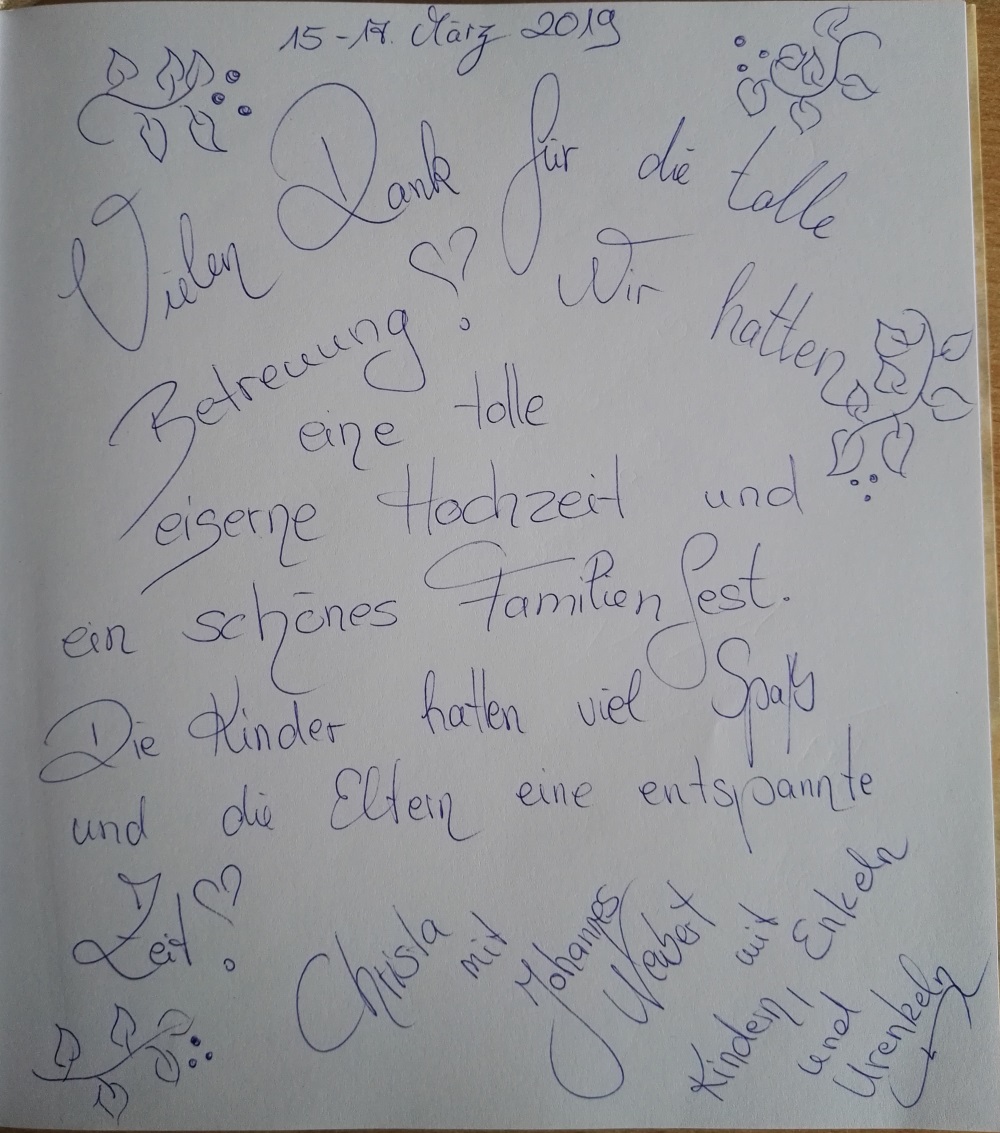 15-17. März 2019
Vielen Dank für die tolle
Betreuung! Wir hatten
eine tolle
eiserne Hochzeit und
ein schönes Familienfest.
Die Kinder hatten viel Spaß
und die Eltern eine entspannte
Zeit!
Christa mit Johannes Weabert mit
Kindern, Enkeln
und Urenkeln